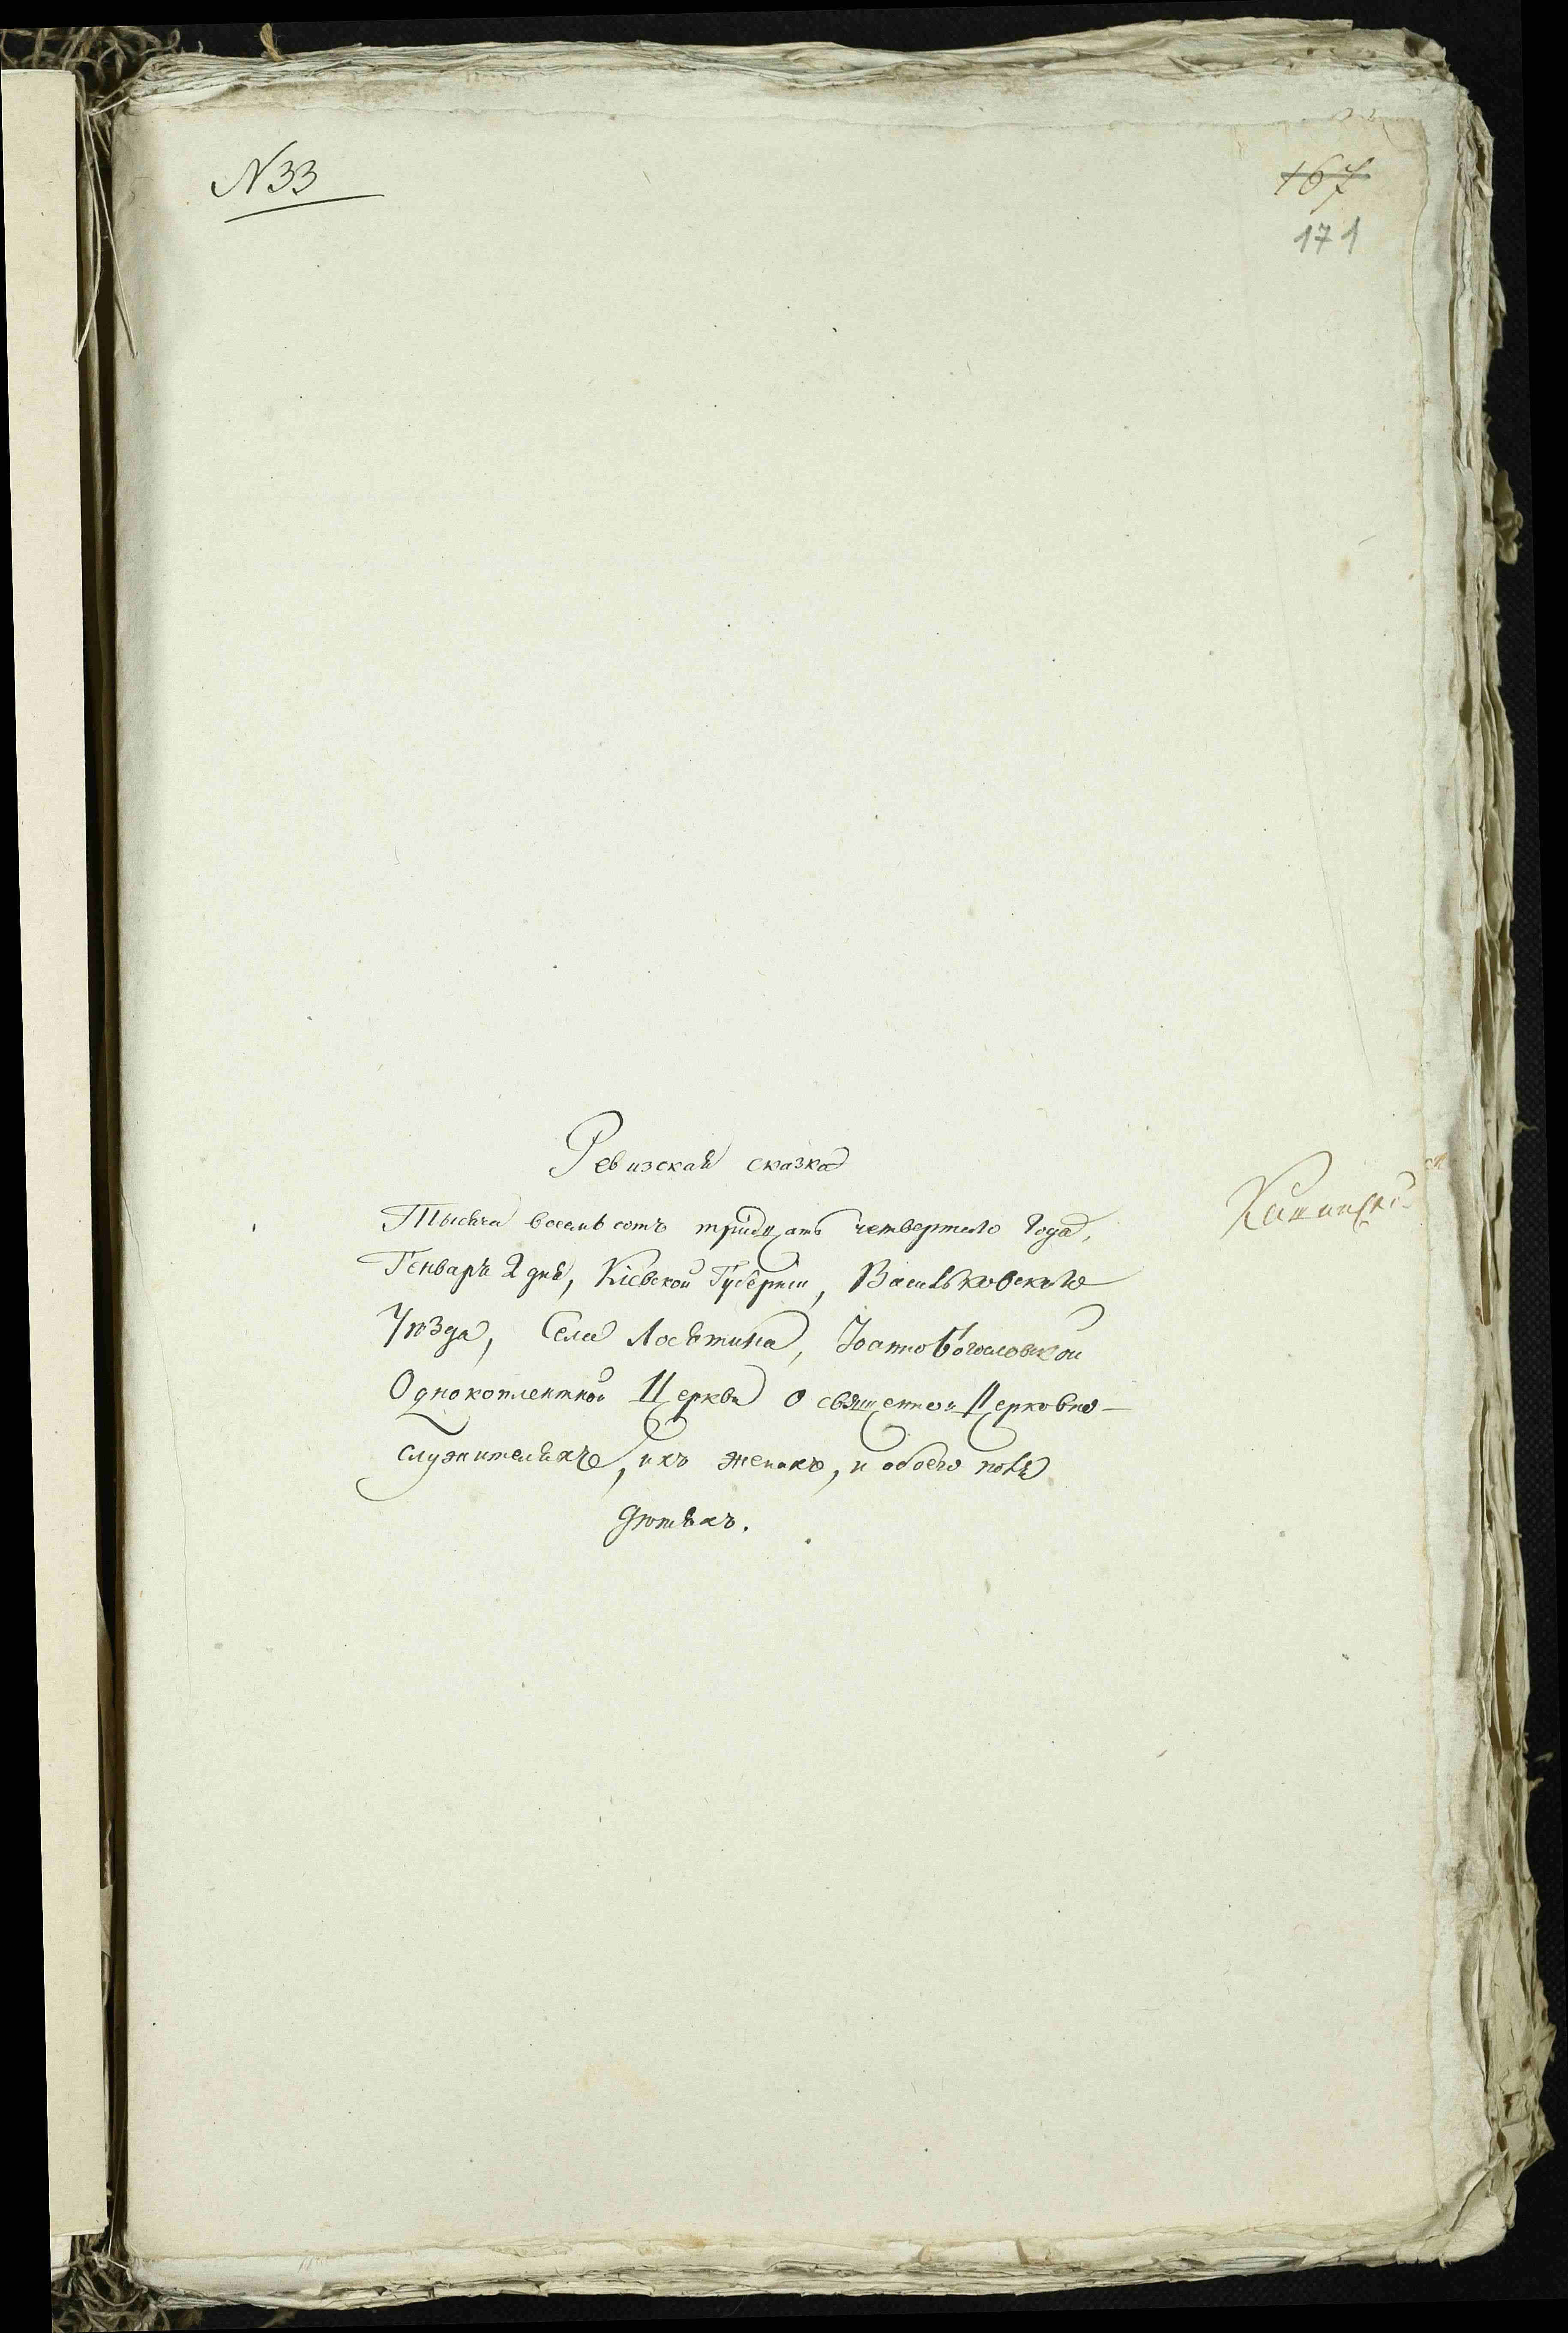 N 33
167
171
Ревизская сказка
Тысяча восемь сотъ тридцать четвертаго года,
Генваря 2 дня, Кіевской Губерніи, Васильковскаго
Уѣзда, Села Лосятина, Іоанно Богословской
Однокомплектной Церкви о священно и Церковно-
служителяхъ, ихъ женахъ, и обоего пола
дѣтяхъ.